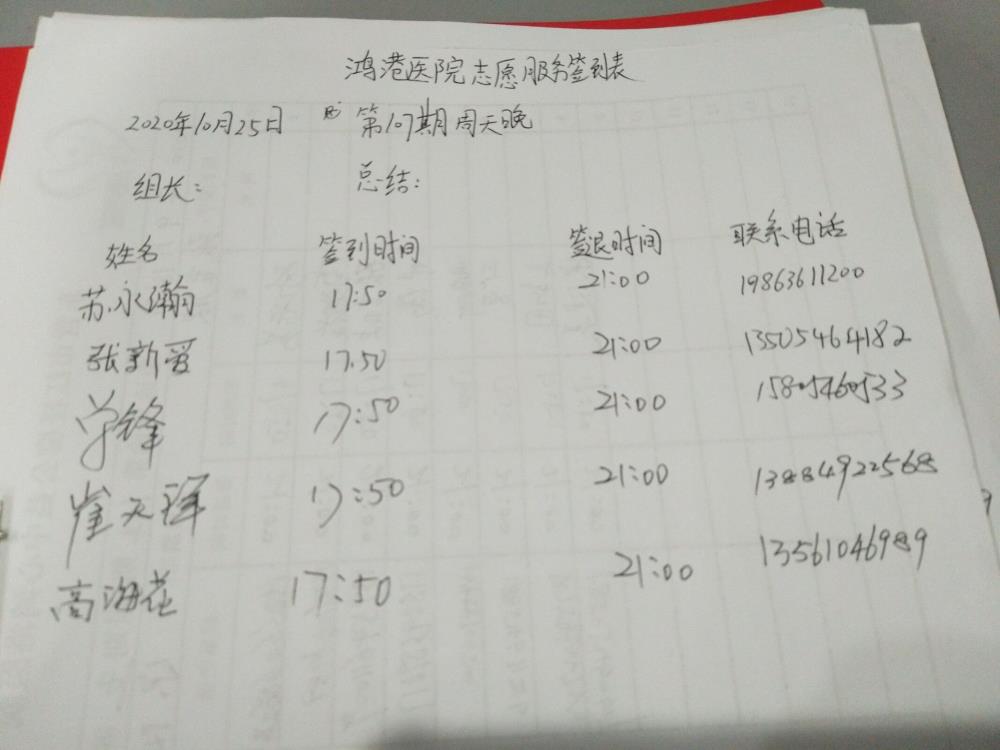 鸿港医院志愿服务签到表
2020年10月25日 第107期周天晚
组长: 总结:
姓名 签到时间 签退时间 联系电话
苏永瀚 17:50 21:00 19863611200
张新爱 17:50 21:00 13505464182
锋 17:50 21:00 15805460533
崔天泽 17:50 21:00 13884922568
高海花 17:50 21:00 13561046989